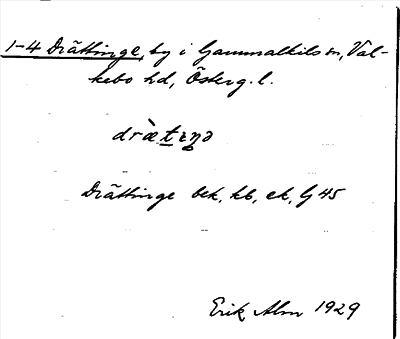 1-4 Drättinge, by i Gammalkils sn, Val-
kebo hd, Österg. l.
drætiŋə
Drättinge bek, hb, ek, G 45
Erik Alm 1929